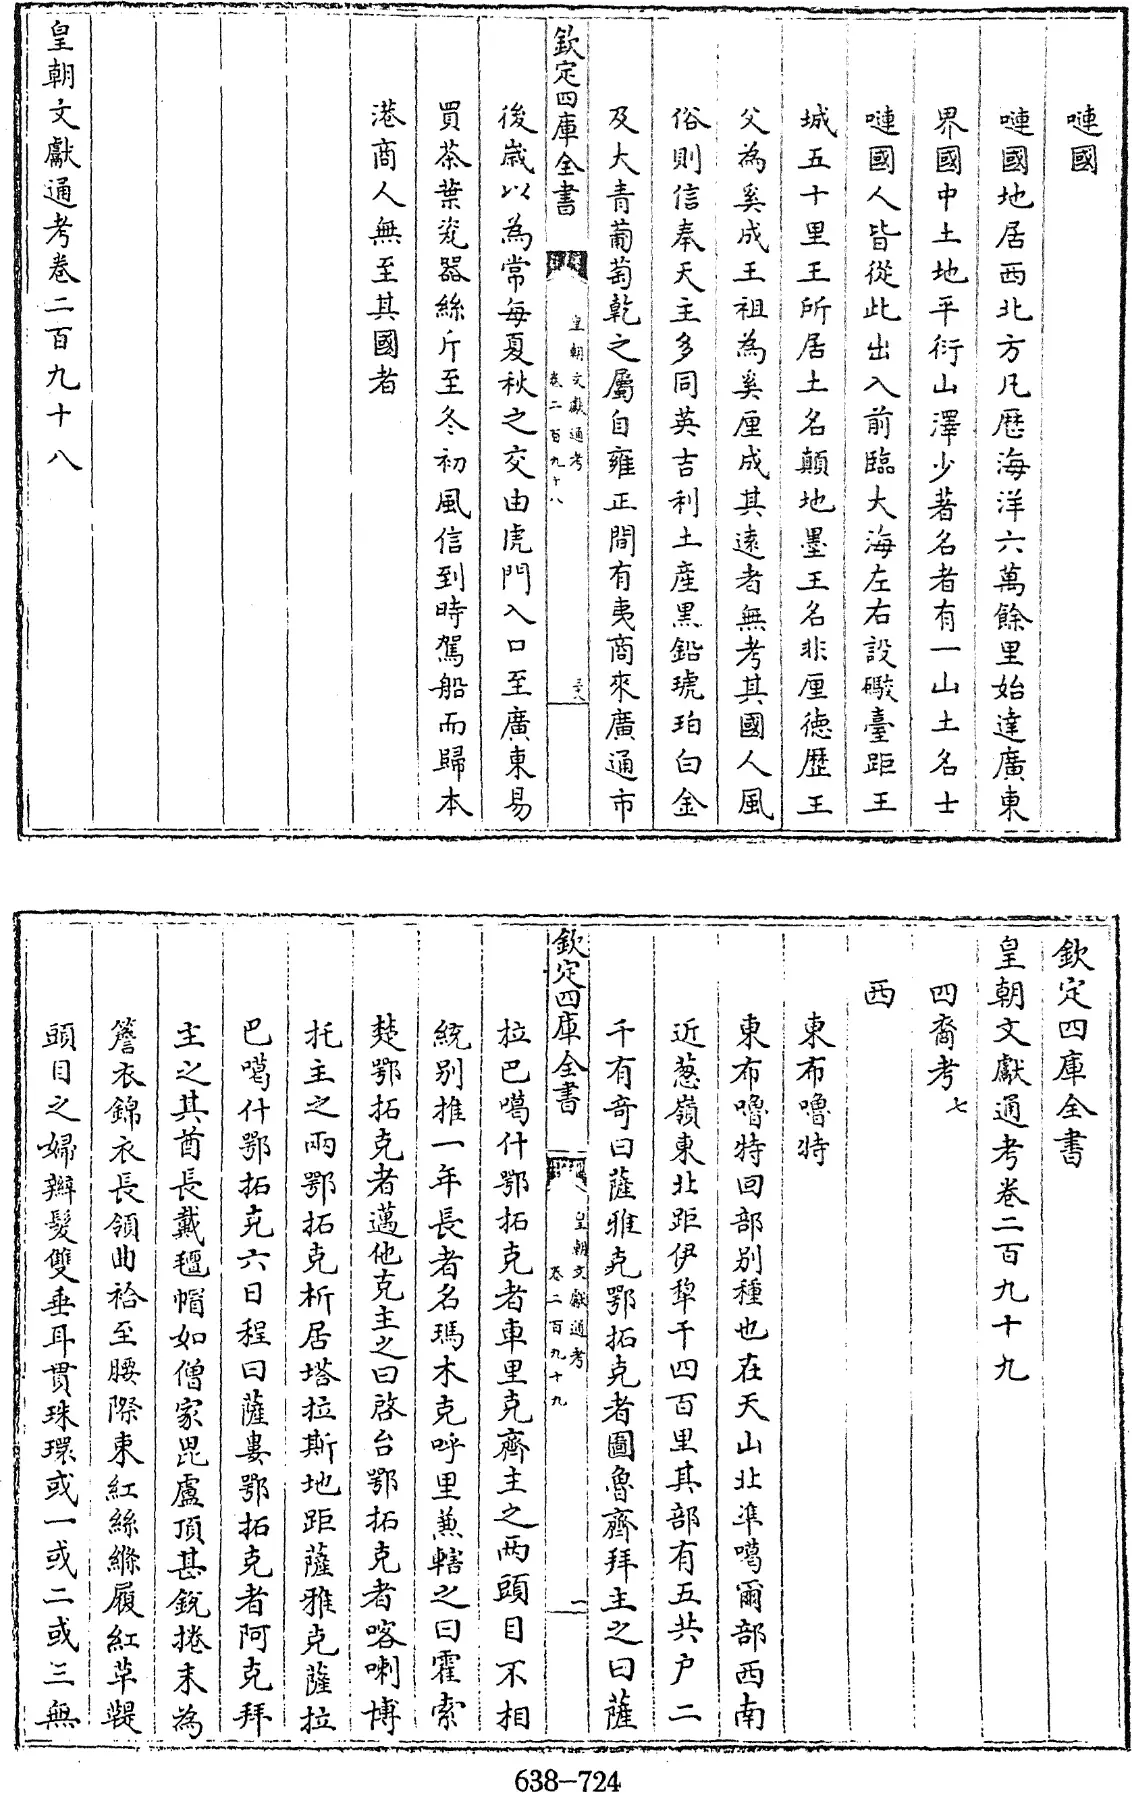 嗹國
嗹國地居西北方凡歴海洋六萬餘里始達廣東
界國中土地平衍山澤少著名者有一山土名士
嗹國人皆從此出入前臨大海左右設礮臺距王
城五十里王所居土名顛地墨王名非厘徳歴王
父為奚成王祖為奚厘成其逺者無考其國人風
俗則信奉天主多同英吉利土産黒鉛琥珀白金
及大青葡萄乾之屬自雍正間有夷商來廣通市
欽定四庫全書
皇朝文獻通考
卷二百九十八
三八
後歳以為常每夏秋之交由虎門入口至廣東易
買茶葉瓷器絲斤至冬初風信到時駕船而歸本
港商人無至其國者
皇朝文獻通考卷二百九十八
欽定四庫全書
皇朝文獻通考卷二百九十九
四裔考七
西
東布嚕特
東布嚕特回部别種也在天山北準噶爾部西南
近蔥嶺東北距伊犂千四百里其部有五共户二
千有奇曰薩雅克鄂拓克者圖魯齊拜主之曰薩
欽定四庫全書
皇朝文獻通考
卷二百九十九
一
拉巴噶什鄂拓克者車里克齊主之兩頭目不相
統别推一年長者名瑪木克呼里兼轄之曰霍索
楚鄂拓克者邁他克主之曰啓台鄂拓克者喀喇博
托主之兩鄂拓克析居塔拉斯地距薩雅克薩拉
巴噶什鄂拓克六日程曰薩婁鄂拓克者阿克拜
主之其酋長戴氊帽如僧家毘盧頂甚銳捲末為
簷衣錦衣長領曲袷至腰際束紅絲縧履紅革鞮
頭目之婦辮髮雙垂耳貫珠環或一或二或三無
638-724